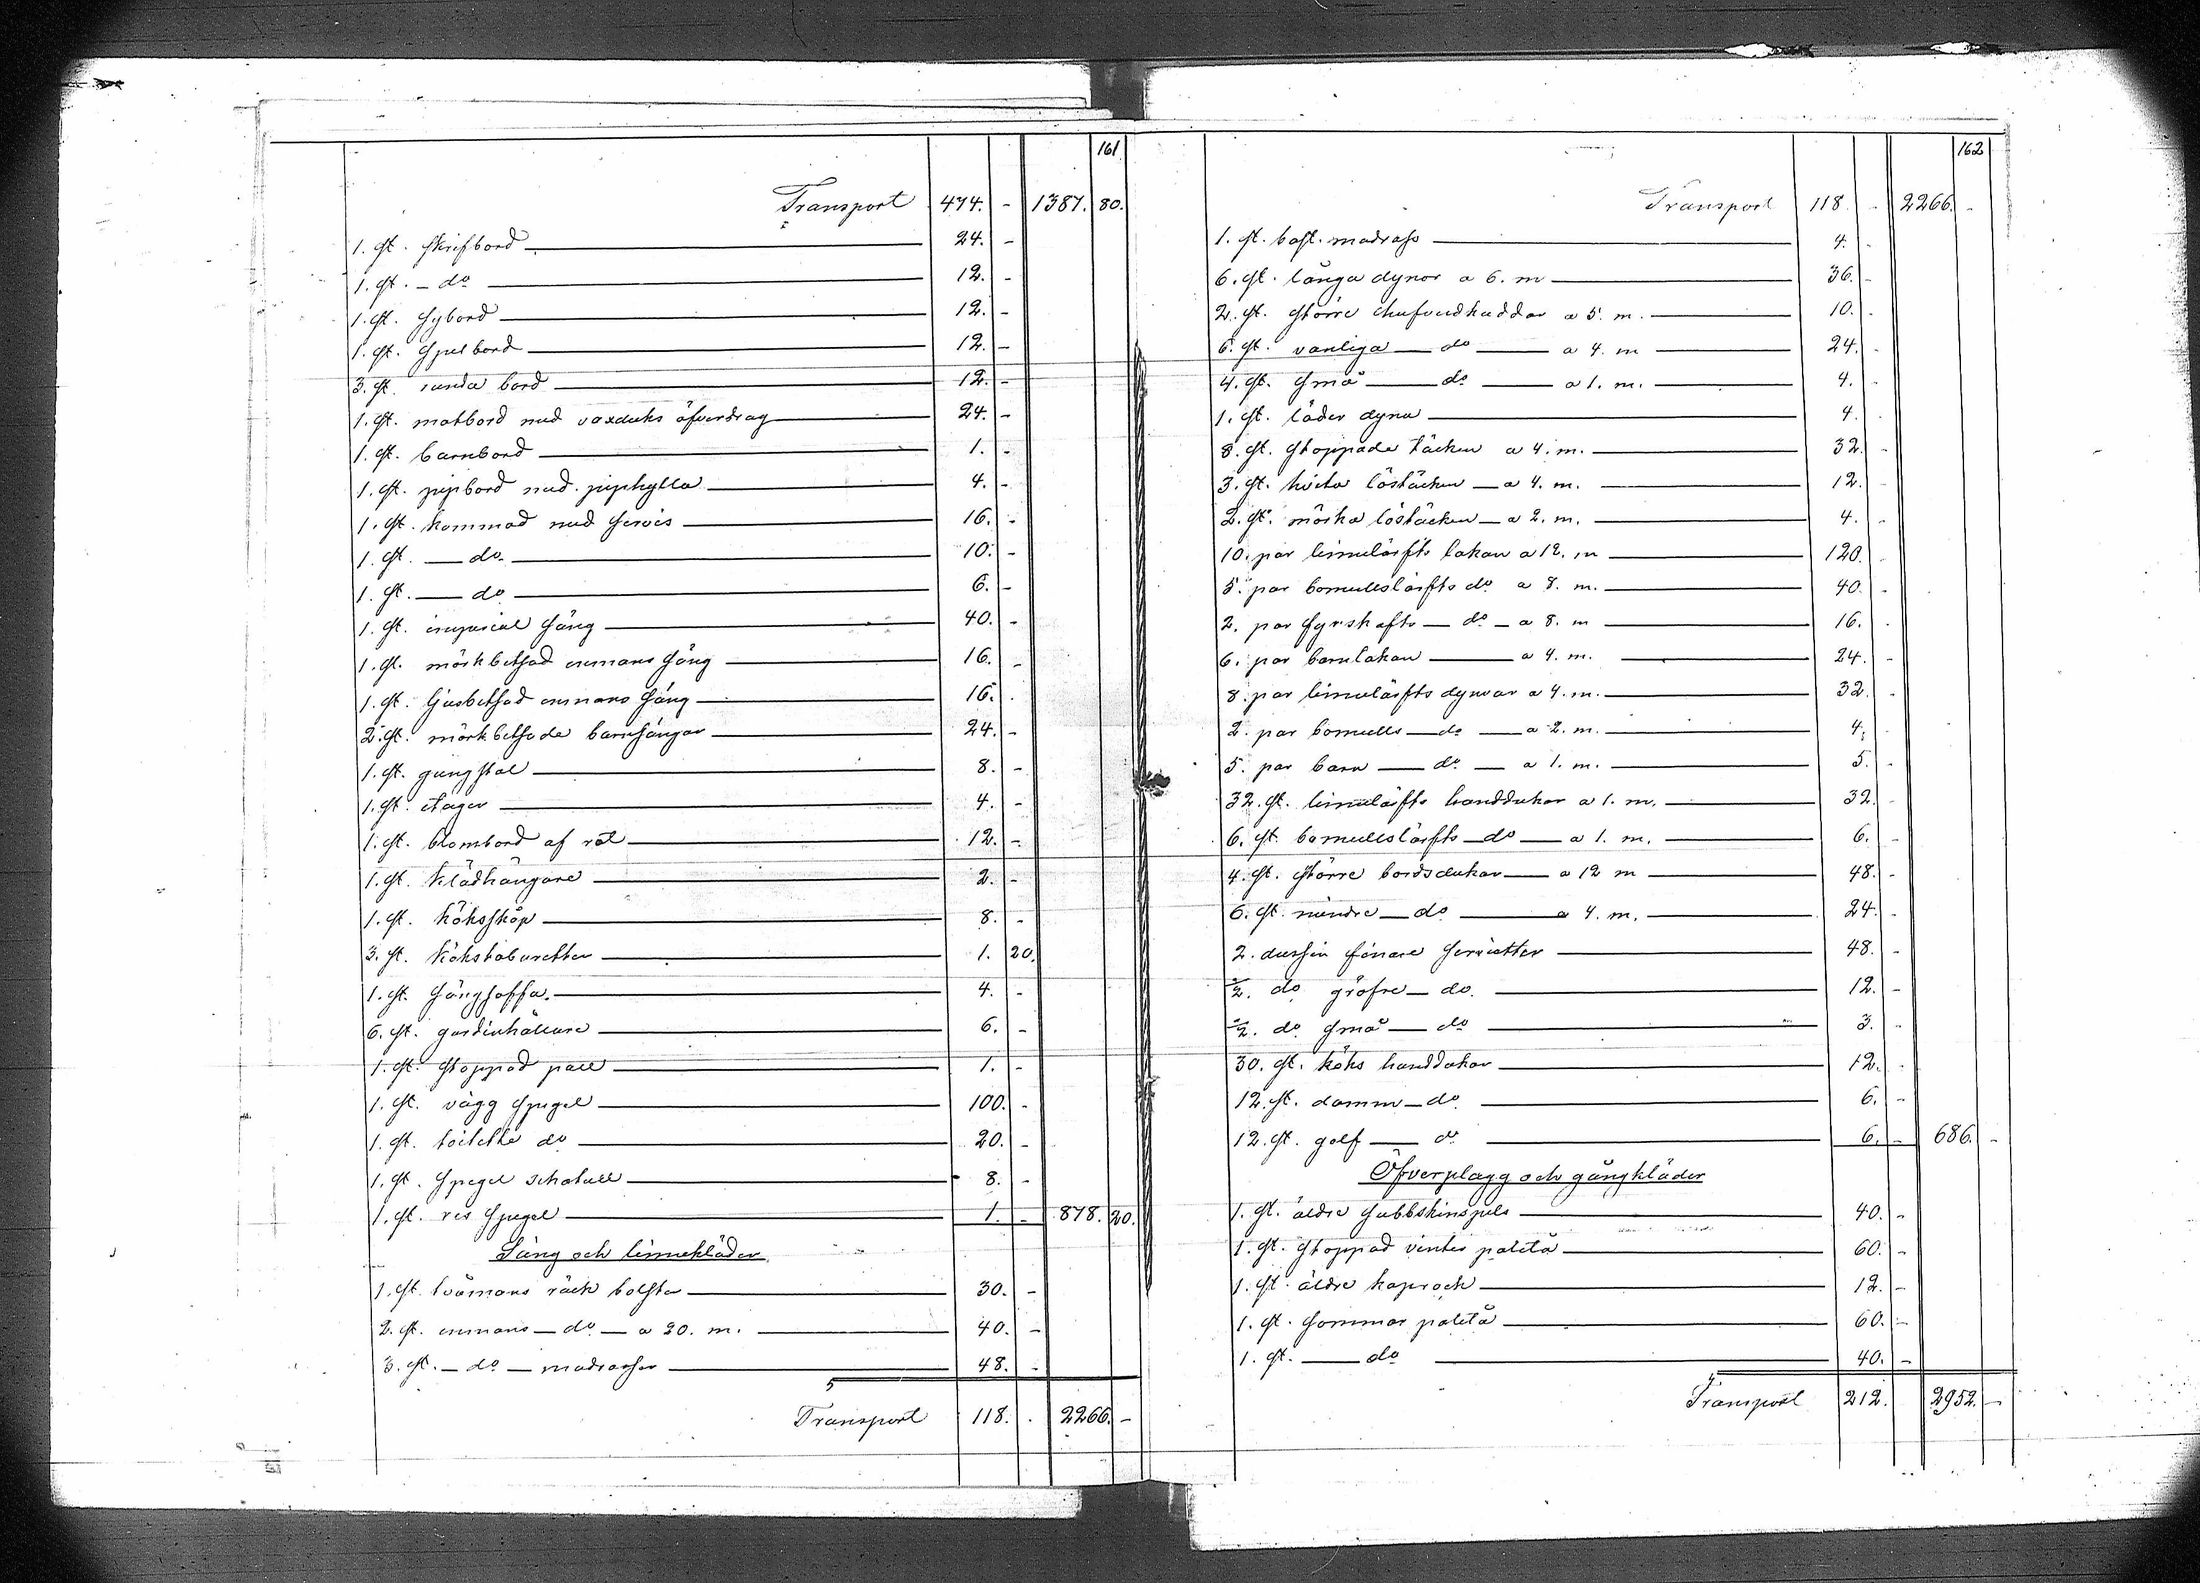 161
Transport 474. - 1387. 80.
1. st. skrifbord 24. -
1. st. - do 12. -
1. st. sybord 12. -
1. st. spelbord 12. -
3. st. runda bord 12. -
1. st. matbord med vaxduks öfverdrag 24. -
1. st. barnbord 1. -
1. st. pipbord med piphylla 4. -
1. st. kommod med servis 16. -
1. st. — do. 10. -
1. st. — do 6. -
1. st. imperial säng 40. -
1. st. mörkbetsad enmans säng 16. -
1. st. ljusbetsad enmans säng 16. -
2. st. mörkbetsade barnsängar 24. -
1. st. gungstol 8. -
1. st. etager 4. -
1. st. blombord af röt 12. -
1. st. klädhängare 2. -
1. st. köksskåp 8. -
3. st. kökstaburetter 1. 20.
1. st. sängsoffa. 4. -
6. st. gardinhållare 6. -
1. st. stoppad pall 1. -
1. st. vägg spegel 100. -
1. st. toilette do 20. -
1. st. spegel schatull 8. -
1. st. res spegel 1. - 878. 20.
Säng och linnekläder
1. st. tvåmans räck bolster 30. -
2. st. enmans — do — a 20. m. 40. -
3. st. — do — madrasser 48. -
Transport 118. - 2266. -
162
Transport 118 - 2266. -
1. st. bast. madrass 4. -
6. st. långa dynor a 6. m 36. -
2. st. större hufvudkuddar a 5. m. 10. -
6. st. vanliga — do — a 4. m 24. -
4. st. små — do — a 1. m. 4. -
1. st. läder dyna 4. -
8. st. stoppade täcken a 4. m. 32. -
3. st. hvita löstäcken — a 4. m. 12. -
2. st. mörka löstäcken — a 2. m. 4. -
10. par linnelärfts lakan a 12. m 120. -
5. par bomullslärfts do a 8. m. 40. -
2. par fyrskafts — do — a 8. m 16. -
6. par barnlakan — a 4. m. 24. -
8. par linnelärfts dynvar a 4. m. 32. -
2. par bomulls — do — a 2. m. 4. -
5. par barn — do — a 1. m. 5. -
32. st. linnelärfts handdukar a 1. m. 32. -
6. st. bomullslärfts — do — a 1. m. 6. -
4. st. större bordsdukar — a 12 m 48. -
6. st. mindre — do — a 4. m. 24. -
2. dussin finare servietter 48. -
½. do gröfre — do. 12. -
½. do små — do 3. -
30. st. köks handdukar 12. -
12. st. damm — do 6. -
12. st. golf — do 6. - 686. -
Öfverplagg och gångkläder
1. st. äldre subbskinspels 40. -
1. st. stoppad vinter paletå 60. -
1. st. äldre kaprock 12. -
1. st. sommar paletå 60. -
1. st. — do 40. -
Transport 212. 2952. -